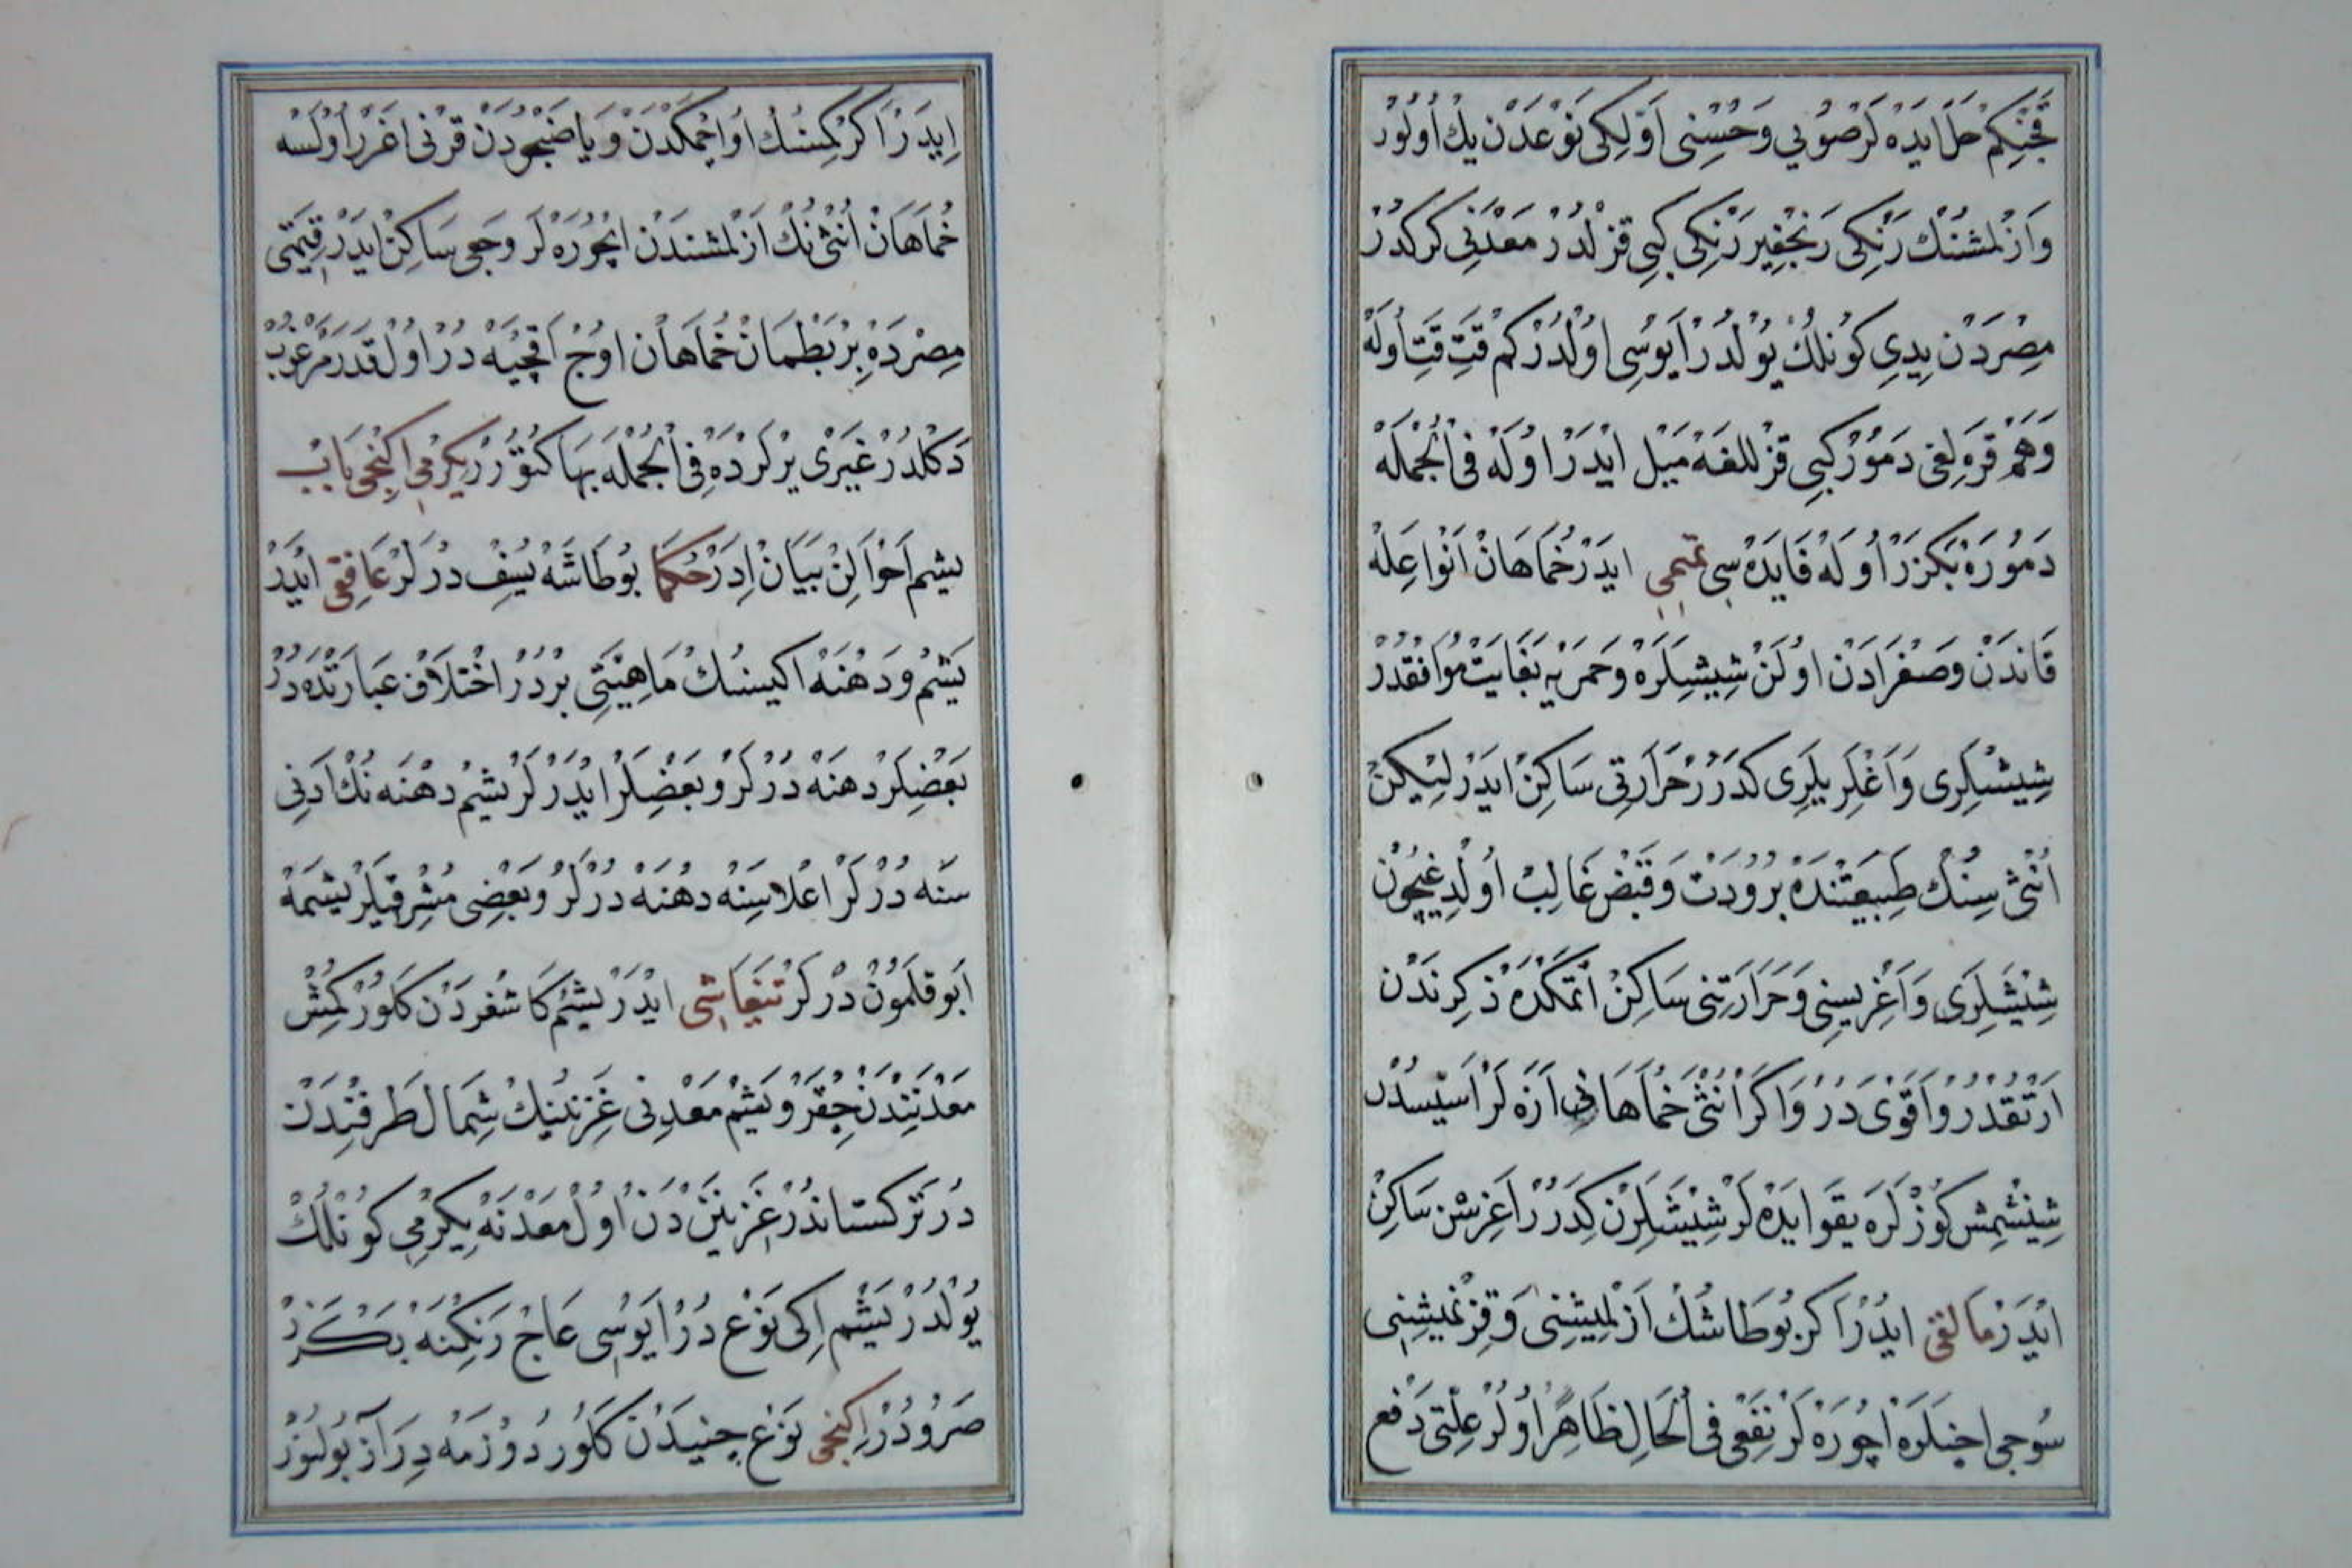 قَچَنكِم حَلّ ايدَه لَر صُويي وَحُسْنى اَوَّلكى نَوْعدَن يك اُولُور
وَازلمشنُك رَنكى رَنجفير رَنكى كبى قزلدُر مَعدَنى كركدُر
مِصْردَن يِدى كونلك يُولدُر اَيوسى اولدُر كم قَت قَت اُولَه
وَهَم قَرَه لغى دَمُور كبى قزللغه مَيل ايدَر اوله فى الجمله
دَمُورَه بَكزَر اُوله فَايدَه سى تميمى ايدَر خُمَاهَان اَنواعله
قَاندَن وصَفرَادَن اولَن شِيشلَره وَحمرَيه بغَايَت مُوَافقدُر
شِيشلرى وَاَغلَر يلَرى كدَرُر حَرَارتى سَاكن ايدَر ليكن
اُنثى سِنُك طبيعَتندَه بُرُودَت وَقَبض غَالب اُولدِيغيچون
شِيشلَرى وَاَغريسنى وَحَرَارَتنى سَاكن اتمكدَه ذكرندَن
اَرتقدُر وَاَقوى دَر وَاكر اُنثى خُمَاهَانى اَزَه لَر اَسّيسدُر
شِيشمش كوزلَره يقَو ايدَه لَر شِيشلَرن كدَرُر اَغرسن سَاكن
ايدَر مَالقى ايدُر اَكر بُو طَاشُك اَزلميشنى وَقزنميشنى
سُوجى اچنلَرَه اچورَه لَر نَفعى فى الحَال ظَاهِرًا اُولُر عِلّتى دَفع
اِيدَر اَكر كمسنُك اُو اچمكدَن وَيَا ضَيجُودَن قَرنى اغرَر اولسه
خُمَاهَان اُنثى نُك اَزلمشندَن اچُورَه لَر وجَعى سَاكن ايدَر قِيمتى
مِصْردَه بر بَطمَان خُمَاهَان اوُچ اَقچَيه دُر اول قدَر مَرغوب
دَكلدُر غَيرى يرلَردَه فى الجُمله بهَا كتورُر يكرمى اكِنجى بَاب
يشم اَحوَالن بيَان ادَر حكمَا بُو طَاشَه يَسف درلَر عَافِقى ايدَر
يَشم وَدَهنه اكيسنك مَاهيَتى بردُر اختلاف عبَارَتدَه دُر
بَعضلَر دهنَه دُرلَر وبَعضِلَر ايدرلَر يشم دهنه نُك اَدنى
سنَه دُرلَر اعلاسنه دهنَه دُرلَر وبَعضى مُشرقيلَر يشمَه
اَبو قلَمون درلَر تيفَاشى ايدَر يشم كَاشغردَن كلُور كمش
مَعدَنندَن چِقَر وَيشم مَعدِنى غزنينك شِمَال طَرفندَن
دُر تُركستاندُر غزنين دَن اول مَعدَنه يكرمى كونلك
يُولدُر يَشم اِكى نَوع دُر اَيوسى عَاج رَنكنه بَكزَر
صَرُودُر اِكِنجى نَوع چيندَن كلُور دوزمه دِر اَز بُولنوُر